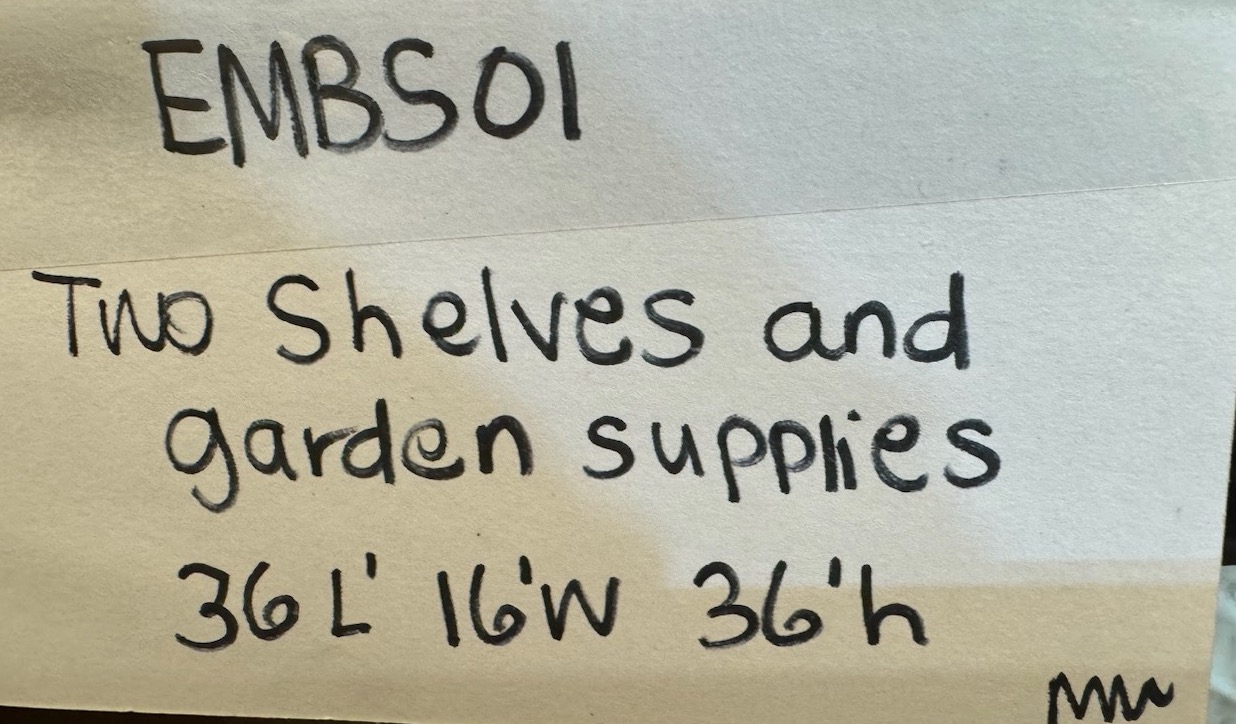 EMBS01
Two Shelves and
garden supplies
36L' 16'W 36'h